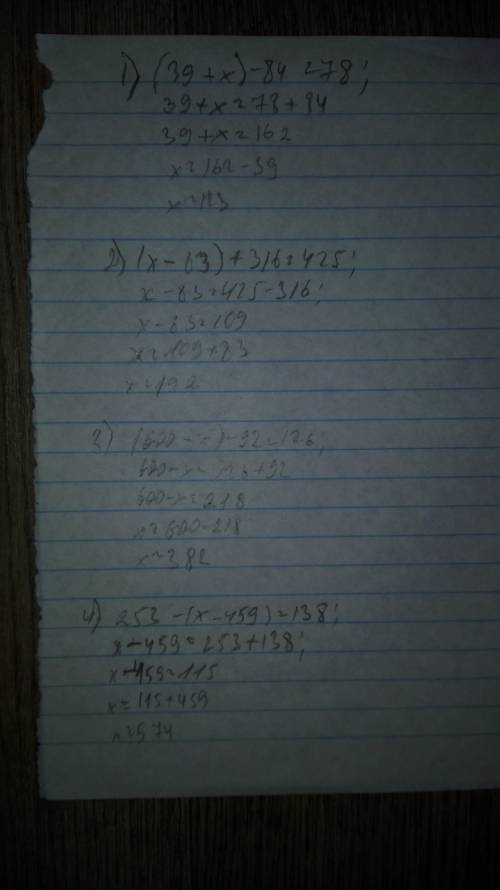 1) (39+x)-84=78;
39+x=78+84
39+x=162
x=162-39
x=123
2) (x-83)+316=425;
x-83=425-316;
x-83=109
x=109+83
x=192
3) (600-x)-92=126;
600-x=126+92
600-x=218
x=600-218
x=382
4) 253-(x-459)=138;
x-459=253+138;
x-459=115
x=115+459
x=574